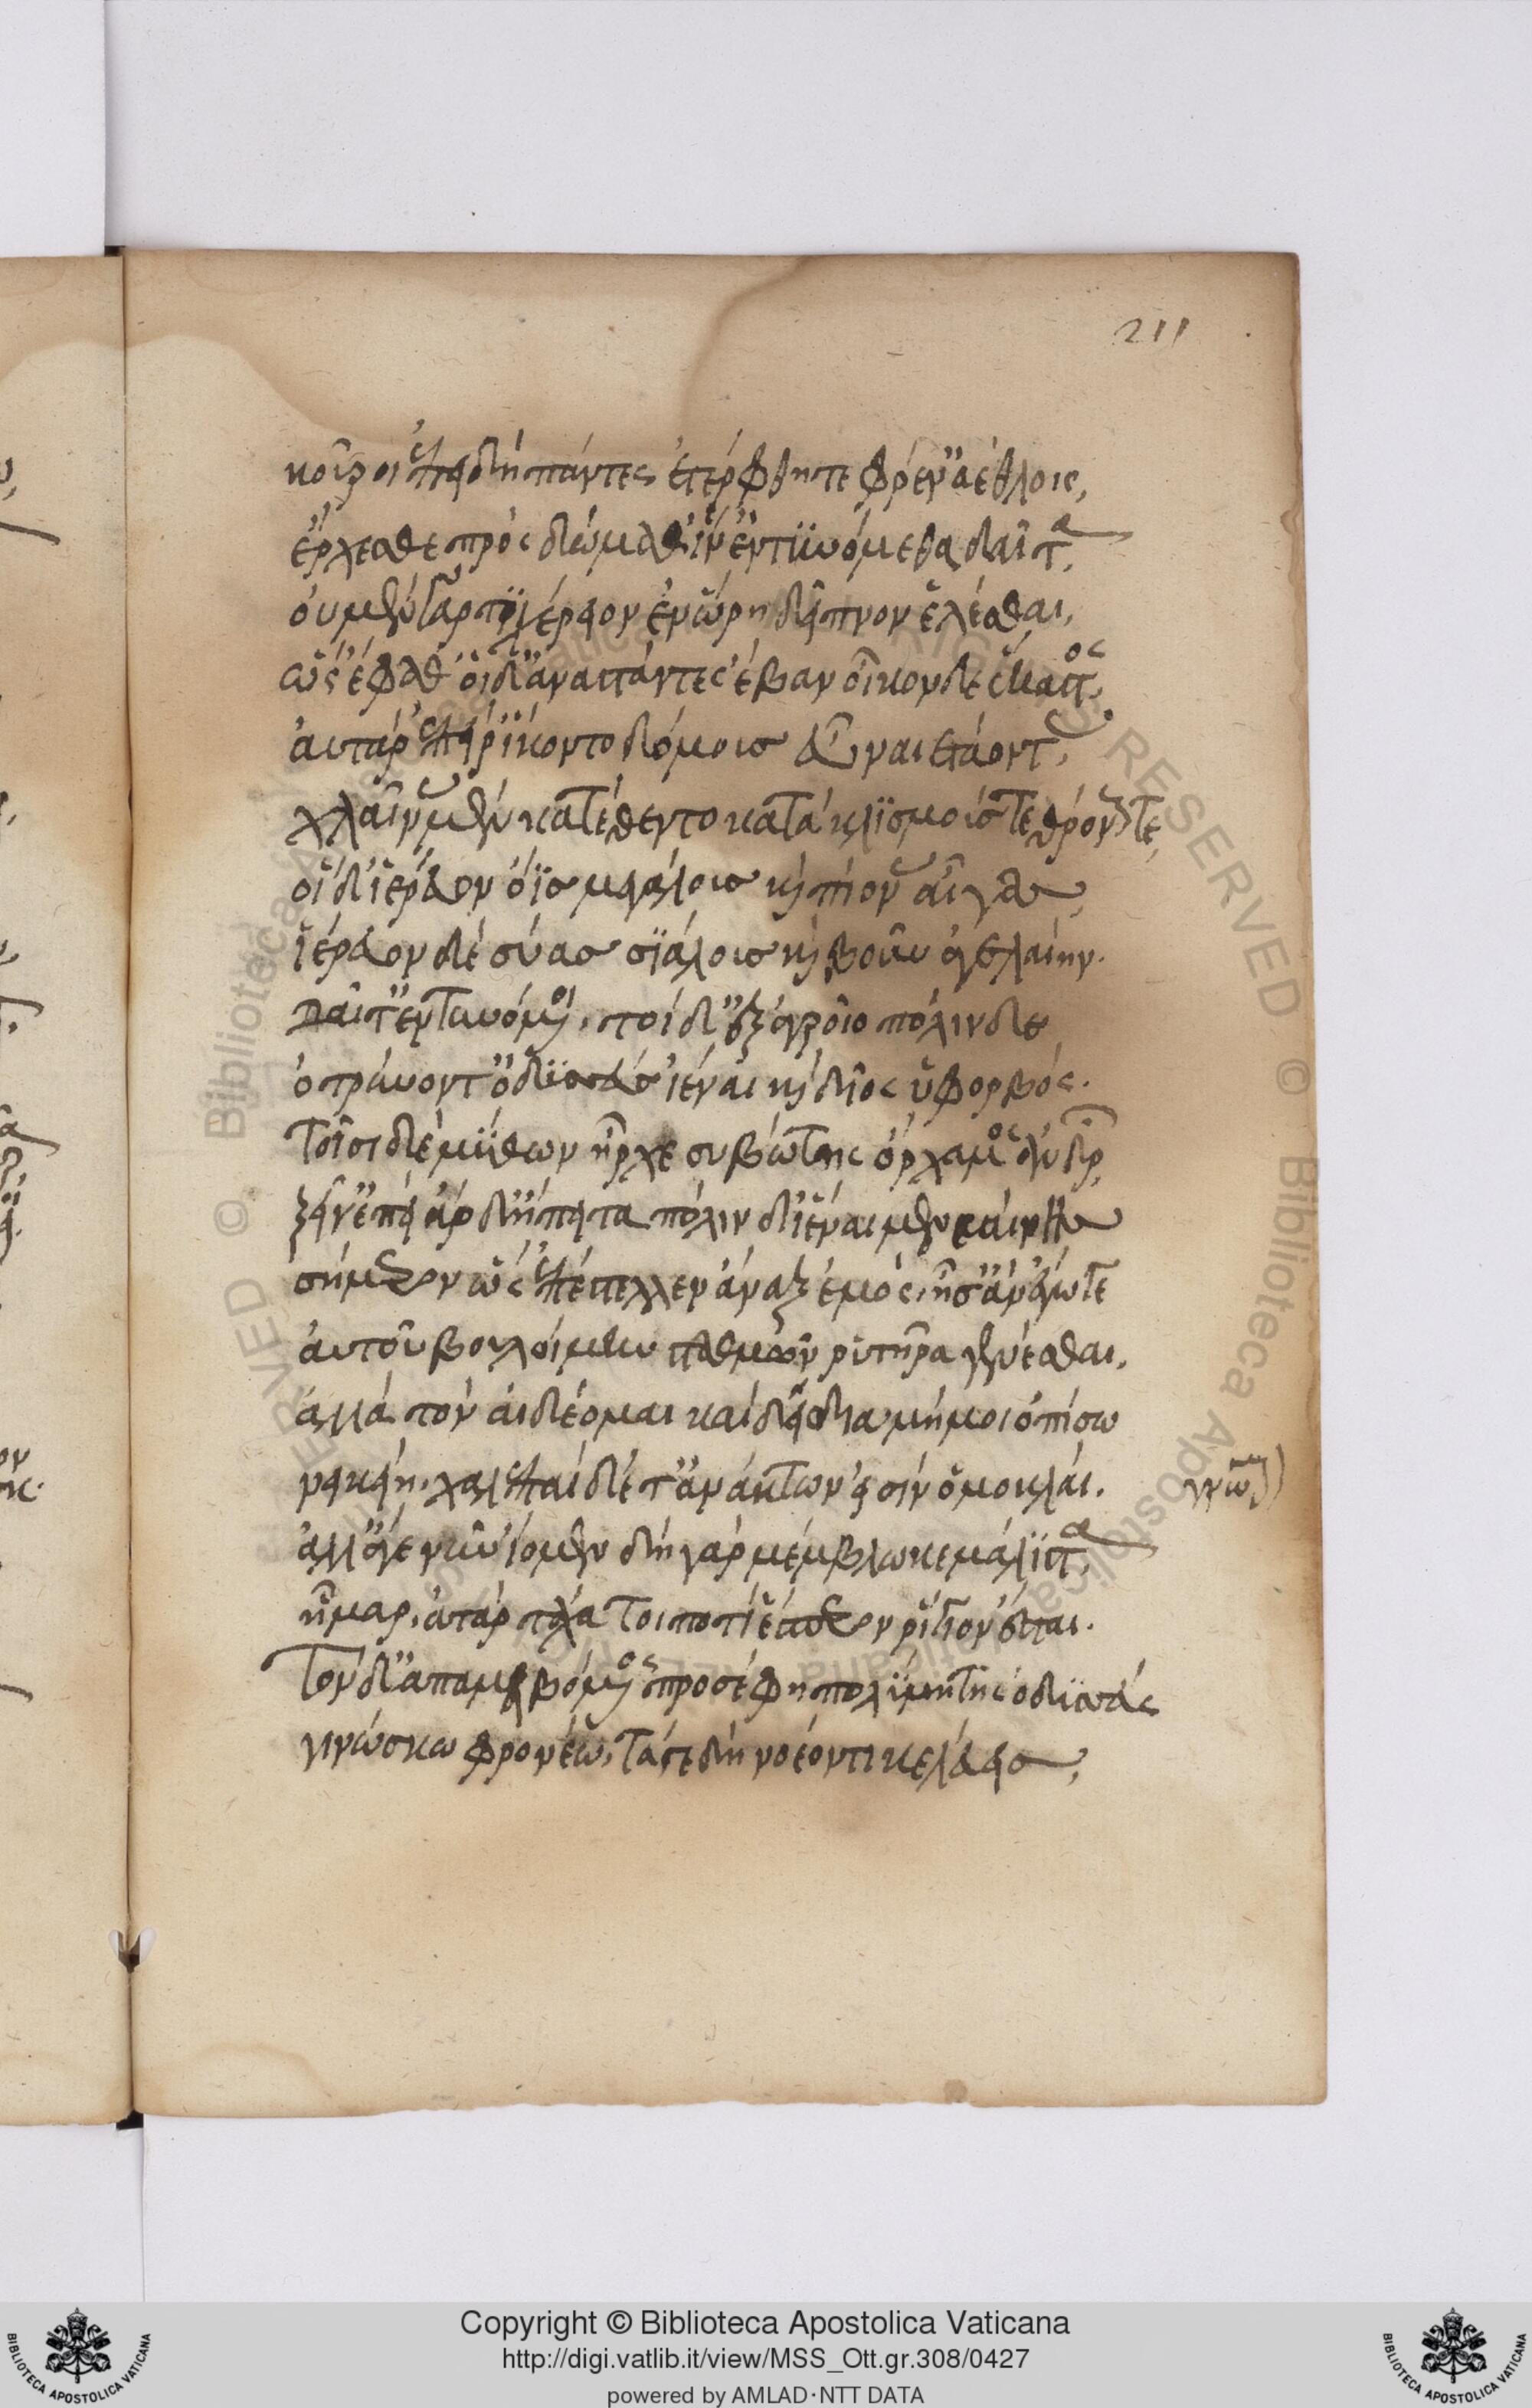 211
κοῦροι ἐπειδὴ πάντες ἐτέρφθητε φρέν' ἀέθλοις,
ἔρχεσθε πρὸς δώμαθ' ἵν' ἐντυνώμεθα δαῖτα,
οὐ μὲν γάρ τι χέρειον ἐν ὥρῃ δεῖπνον ἑλέσθαι,
ὣς ἔφαθ' οἱ δ' ἀνα πάντες ἔβαν οἶκονδε ἕκαστος,
αὐτὰρ ἐπεί ῥ' ἵκοντο δόμοισ εὖ ναιετάοντας,
χλαίνας μὲν κατέθεντο κατὰ κλισμούς τε θρόνους τε,
οἳ δ' ἱέρευον ὄϊσ μεγάλουσ καὶ πίονας αἶγας,
ἱέρευον δὲ σύασ σιάλουσ καὶ βοῦν ἀγελαίην.
Δαῖτ' ἐντυνόμενοι. τοὶ δ' ἐξ ἀγροῖο πόλινδε
ὀτρύνοντ' ὀδυσεύσ ἰέναι καὶ δῖος ὑφορβός.
Τοῖσι δὲ μύθων ἦρχε συβώτης ὄρχαμος ἀνδρῶν,
ξεῖν' ἐπεὶ ἂρ δὴ ἔπειτα πόλιν δ' ἰέναι μενεαίνεις
σήμερον ὡς ἐπέτελλεν ἄναξ ἐμός, ἦ σ' ἂν ἔγωγε
αὐτοῦ βουλοίμην σταθμῶν ῥυτῆρα γενέσθαι,
ἀλλὰ τὸν αἰδέομαι καὶ δείδια μή μοι ὀπίσω
νεικείη. χαλεπαὶ δέ τ' ἀνάκτων εἰσὶν ὁμοκλαί.
ἀλλ' ἄγε νῦν ἴομεν δὴ γὰρ μέμβλωκε μάλιστα,
ἦμαρ, ἀτὰρ τάχα τοι ποτὶ ἕσπερα ῥίγιον ἔσται.
Τὸν δ' ἀπαμειβόμενος προσέφη πολύμητις ὀδυσσεύς
γινώσκω φρονέω, τά γε δὴ νοέοντι κελεύεισ,
Copyright © Biblioteca Apostolica Vaticana
http://digi.vatlib.it/view/MSS_Ott.gr.308/0427
powered by AMLAD·NTT DATA
BIBLIOTECA APOSTOLICA VATICANA
BIBLIOTECA APOSTOLICA VATICANA